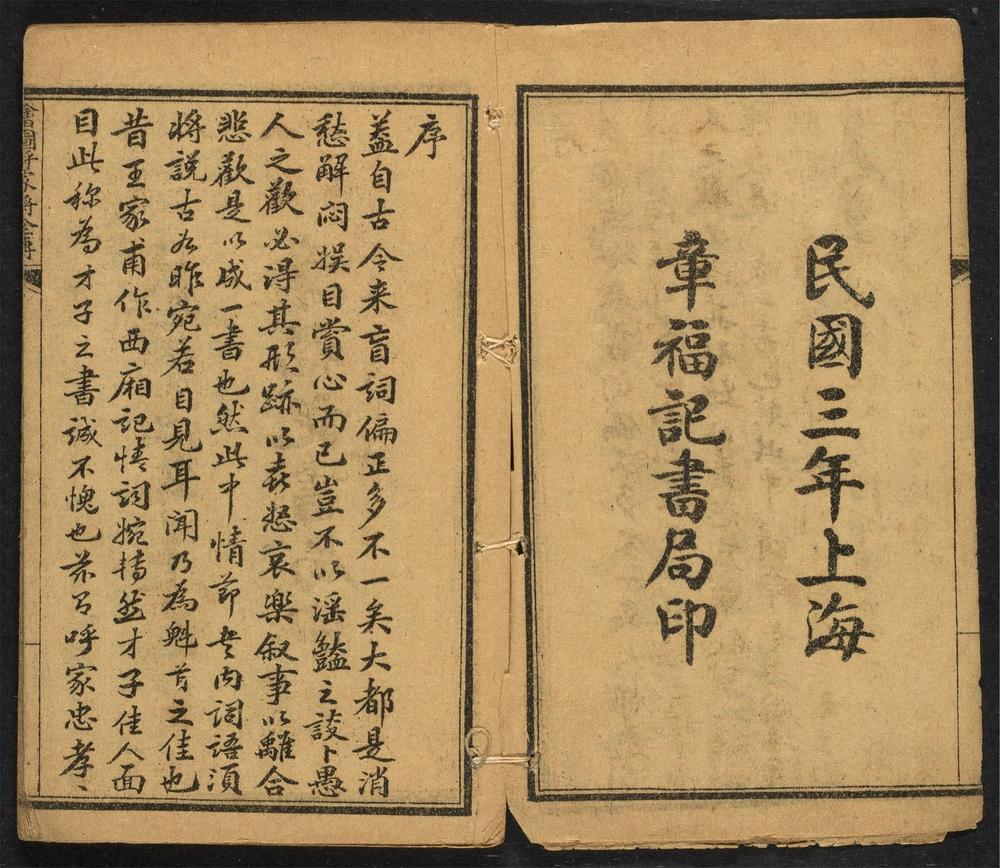 民國三年上海
章福記書局印
序
蓋自古今来盲詞偏正多不一矣大都是消
愁解悶娱目賞心而已豈不以滛豔之談卜愚
人之歡必得其形跡以喜怒哀樂叙事以離合
悲歡是以成一書也然此中情節内詞語須
将説古如昨宛若目見耳聞乃為魁首之佳也
昔王家甫作西廂記情詞婉轉然才子佳人面
目此称為才子之書誠不愧也呼家忠孝〻
繪圖呼家將全傳